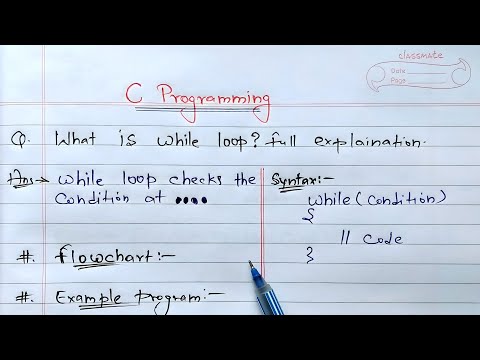 classmate
Date
Page
C Programming
Q. What is while loop? full explaination.
Ans→ While loop checks the
Condition at ••••
Syntax:-
while (condition)
{
// Code
}
#. flowchart:-
#. Example program:-